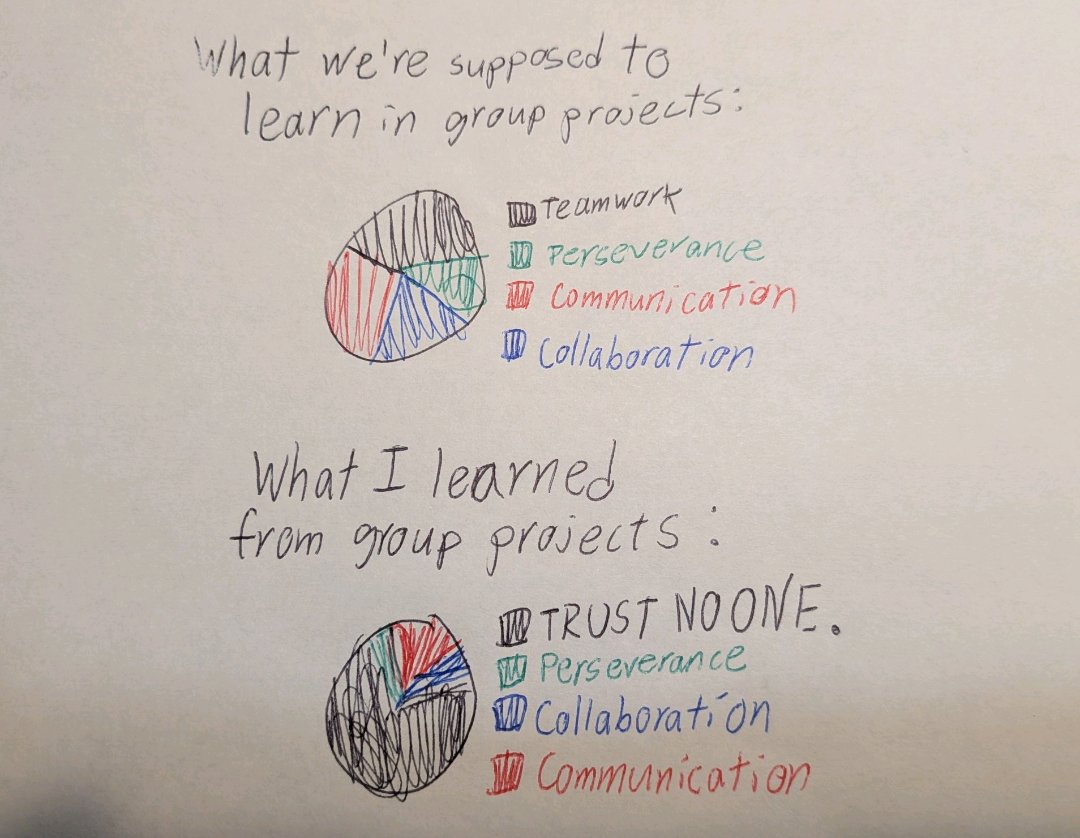 What we're supposed to
learn in group projects:
Teamwork
Perseverance
Communication
Collaboration
What I learned
from group projects:
TRUST NO ONE.
Perseverance
Collaboration
Communication